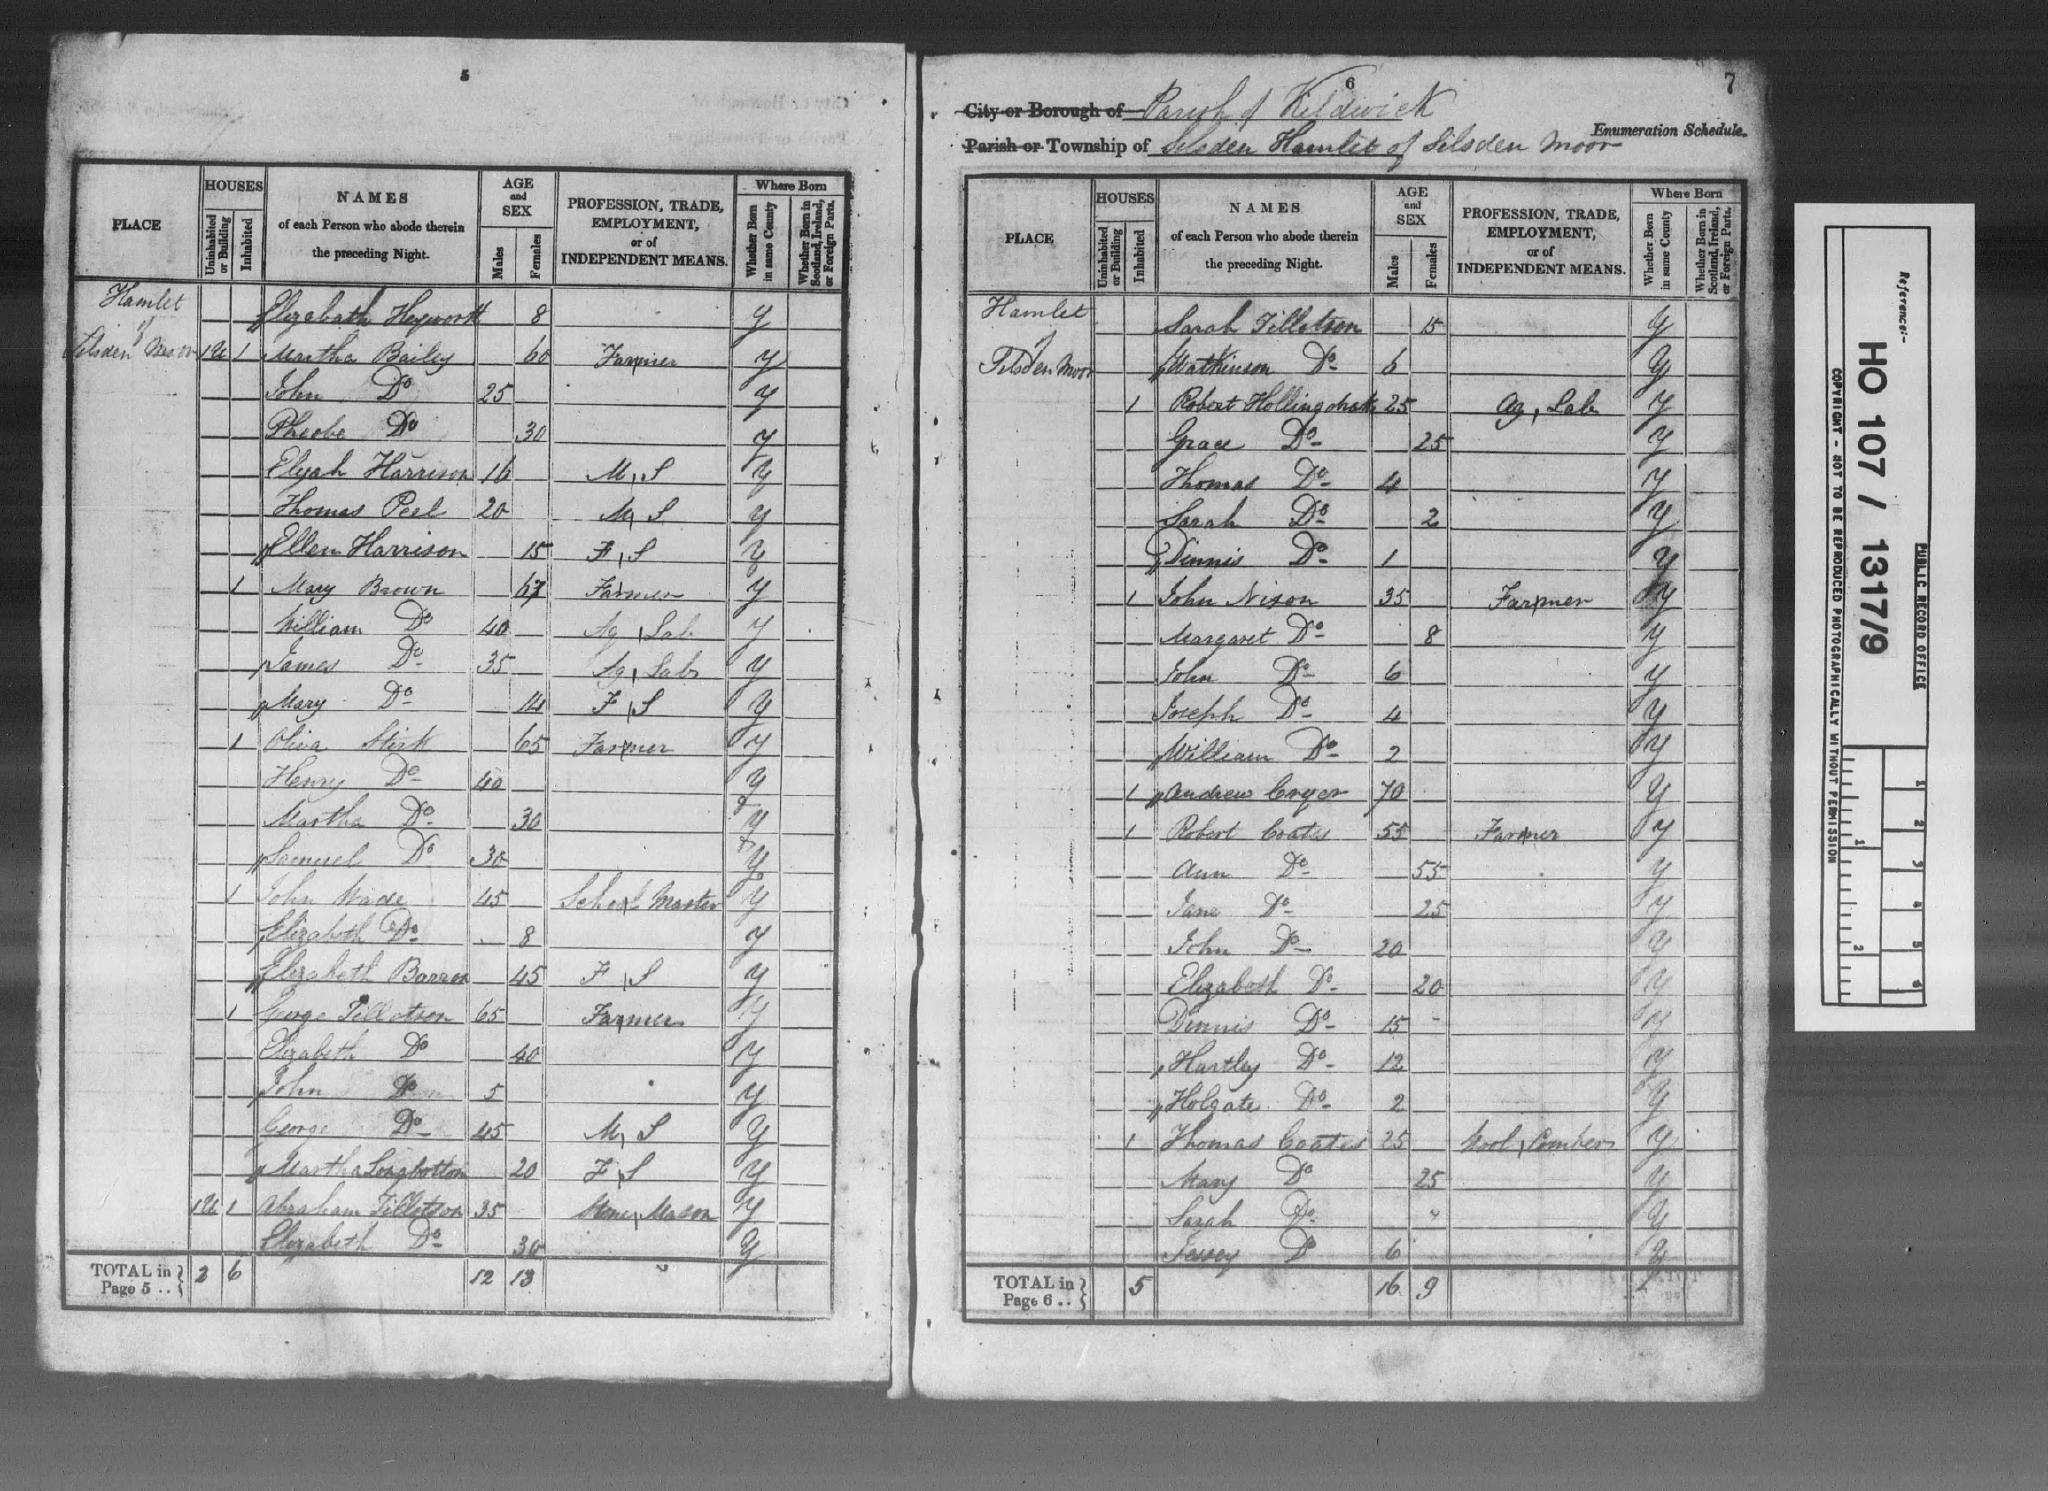 5
PLACE HOUSES Uninhabited or Building Inhabited NAMES of each Person who abode therein the preceding Night. AGE and SEX Males Females PROFESSION, TRADE, EMPLOYMENT, or of INDEPENDENT MEANS. Where Born Whether Born in same County Whether Born in Scotland, Ireland, or Foreign Parts.
Hamlet Elizabeth Heyworth 8 Y
of
Silsden Moor 1U 1 Martha Bailey 60 Farmer Y
John Do 25 Y
Pheobe Do 30 Y
Elijah Harrison 16 M, S Y
Thomas Peel 20 M, S Y
Ellen Harrison 15 F, S Y
1 Mary Brown 67 Farmer Y
William Do 40 Ag, Lab Y
James Do 35 Ag, Lab Y
Mary Do 14 F, S Y
1 Oliva Stirk 65 Farmer Y
Henry Do 40 Y
Martha Do 30 Y
Samuel Do 30 Y
1 John Wade 45 School Master Y
Elizabeth Do 8 Y
Elizabeth 45 F, S Y
1 George Tillotson 65 Farmer Y
Elizabeth Do 40 Y
John Do 5 Y
George Do 45 M, S Y
Martha Longbottom 20 F, S Y
1U 1 Abraham Tillotson 35 Stone, Mason Y
Elizabeth Do 30 Y
TOTAL in Page 5 .. 2 6 12 13
6
7
City or Borough of Parish of Kildwick
Enumeration Schedule.
Parish or Township of Silsden Hamlet of Silsden Moor
PLACE HOUSES Uninhabited or Building Inhabited NAMES of each Person who abode therein the preceding Night. AGE and SEX Males Females PROFESSION, TRADE, EMPLOYMENT, or of INDEPENDENT MEANS. Where Born Whether Born in same County Whether Born in Scotland, Ireland, or Foreign Parts.
Hamlet Sarah Tillotson 15 Y
of
Silsden Moor Watkinson Do 6 Y
1 Robert 25 Ag, Lab Y
Grace Do 25 Y
Thomas Do 4 Y
Sarah Do 2 Y
Dennis Do 1 Y
1 John Nixon 35 Farmer Y
Margaret Do 8 Y
John Do 6 Y
Joseph Do 4 Y
William Do 2 Y
1 Andrew Cryer 70 Y
1 Robert Coates 55 Farmer Y
Ann Do 55 Y
Jane Do 25 Y
John Do 20 Y
Elizabeth Do 20 Y
Dennis Do 15 Y
Hartley Do 12 Y
Holgate Do 2 Y
1 Thomas Coates 25 Wool, Comber Y
Mary Do 25 Y
Sarah Do " Y
Do 6 Y
TOTAL in Page 6 .. 5 16 9
Reference:-
HO 107 / 1317/9
PUBLIC RECORD OFFICE
COPYRIGHT - NOT TO BE REPRODUCED PHOTOGRAPHICALLY WITHOUT PERMISSION
1 2 3 4 5 6
1 2